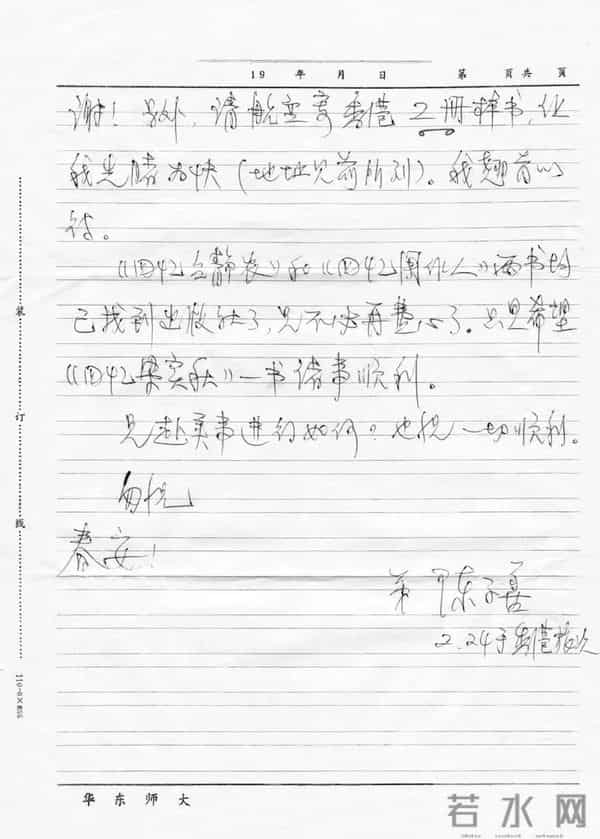 19 年 月 日 第 页共 页
谢！另外，请航空寄香港2册样书，让
我先睹为快（地址见前所列）。我翘首以
待。
《回忆台静农》和《回忆周作人》两书均
已找到出版社了，兄不必再费心了。只是希望
《回忆梁实秋》一书诸事顺利。
兄赴美事进行如何？也祝一切顺利。
匆忙
春安！
弟 陈子善
2.24于香港旅次
装
订
线
华东师大
若水网